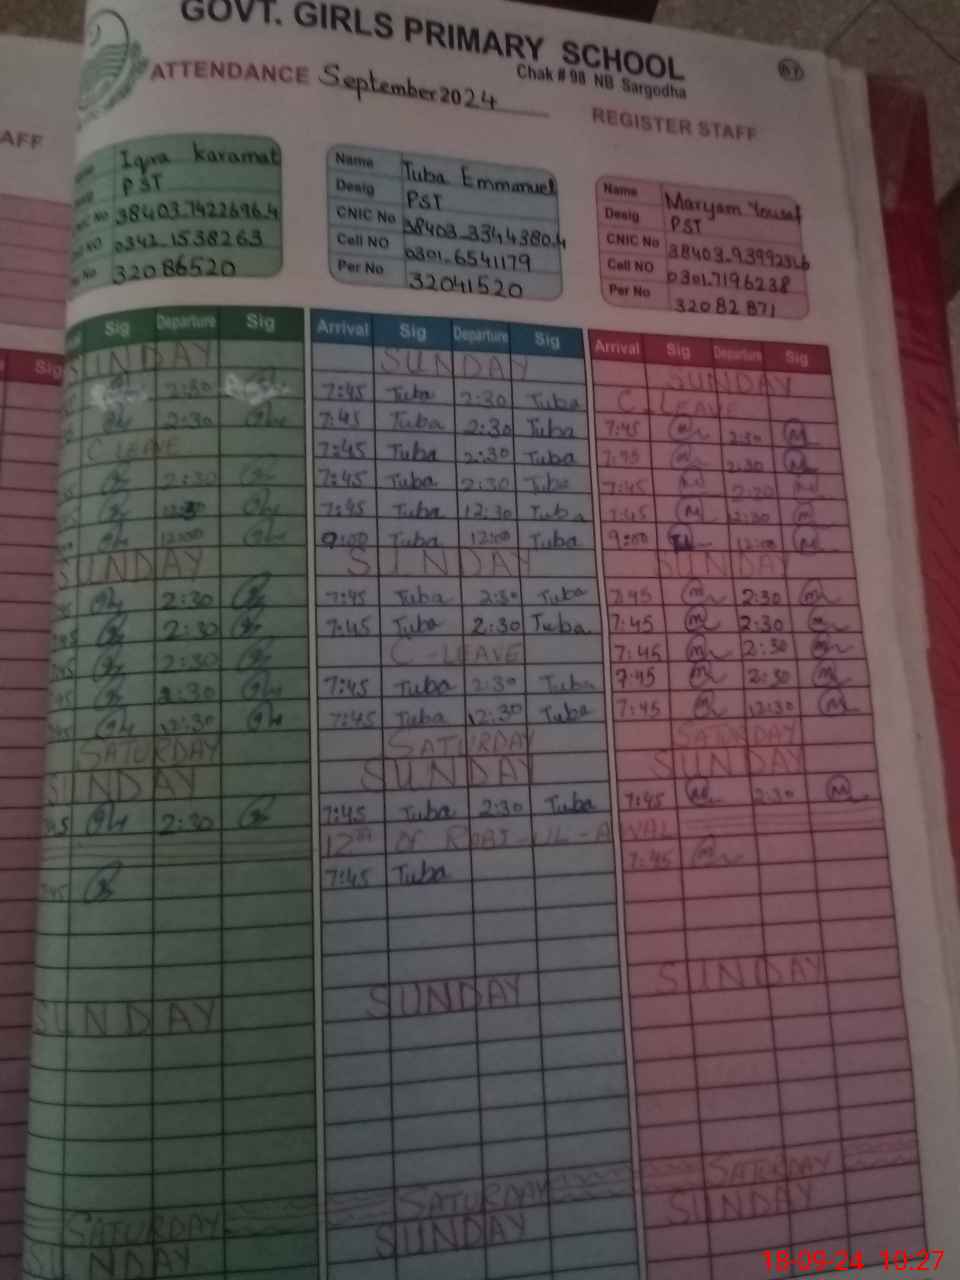 GOVT. GIRLS PRIMARY SCHOOL
Chak # 98 NB Sargodha
ATTENDANCE September 2024
REGISTER STAFF
AFF
Iqra Karamat
PST
0342-1538263
32086520
Name Tuba Emmanuel
Desig PST
CNIC No 38403-3344380-4
Cell NO 0301-6541179
Per No 32041520
Name Maryam Yousaf
Desig PST
CNIC No
Cell NO 0301-7196238
Per No 32082871
Sig Departure Sig Arrival Sig Departure Sig Arrival Sig Departure Sig
SUNDAY SUNDAY SUNDAY
2:30 7:45 Tuba 2:30 Tuba C.LEAVE
2:30 7:45 Tuba 2:30 Tuba 7:45 2:30
C LEAVE 7:45 Tuba 2:30 Tuba 7:45 2:30
2:30 7:45 Tuba 2:30 Tuba 7:45
7:45 Tuba 12:30 Tuba 7:45
12:00 9:00 Tuba 12:00 Tuba 9:00 12:00
SUNDAY SUNDAY SUNDAY
2:30 7:45 Tuba 2:30 Tuba 7:45 2:30
2:30 7:45 Tuba 2:30 Tuba 7:45 2:30
2:30 C-LEAVE 7:45 2:30
2:30 7:45 Tuba 2:30 Tuba 7:45 2:30
12:30 7:45 Tuba 12:30 Tuba 7:45 12:30
SATURDAY SATURDAY SATURDAY
SUNDAY SUNDAY SUNDAY
2:30 7:45 Tuba 2:30 Tuba 7:45 2:30
12th OF RABI-UL-AWAL
7:45 Tuba 7:45
SUNDAY SUNDAY SUNDAY
SATURDAY SATURDAY SATURDAY
SUNDAY SUNDAY SUNDAY
18-09-24 10:27